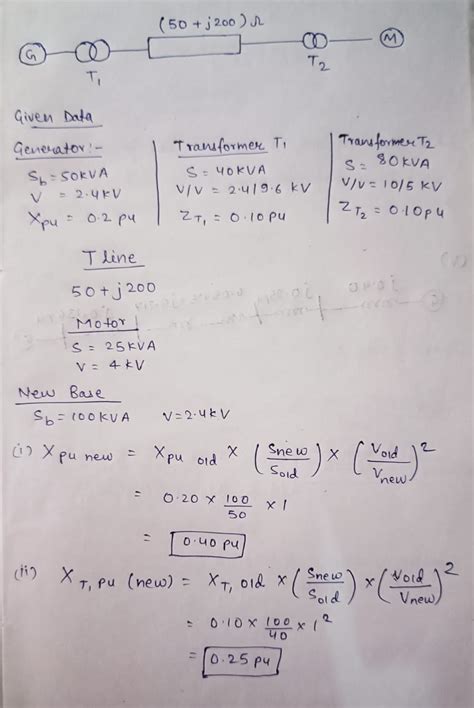 (50+j200)Ω
G
T1
T2
M
Given Data
Generator:-
Sb = 50KVA
V = 2.4KV
Xpu = 0.2 pu
Transformer T1
S = 40KVA
V/V = 2.4/9.6 KV
ZT1 = 0.10pu
Transformer T2
S = 80KVA
V/V = 10/5 KV
ZT2 = 0.10pu
T line
50 + j200
Motor
S = 25KVA
V = 4 KV
New Base
Sb = 100KVA V=2.4KV
(i) Xpu new = Xpu old × (Snew/Sold) × (Vold/Vnew)²
= 0.20 × 100/50 × 1
= 0.40 pu
(ii) XT, pu (new) = XT, old × (Snew/Sold) × (Vold/Vnew)²
= 0.10 × 100/40 × 1²
= 0.25 pu